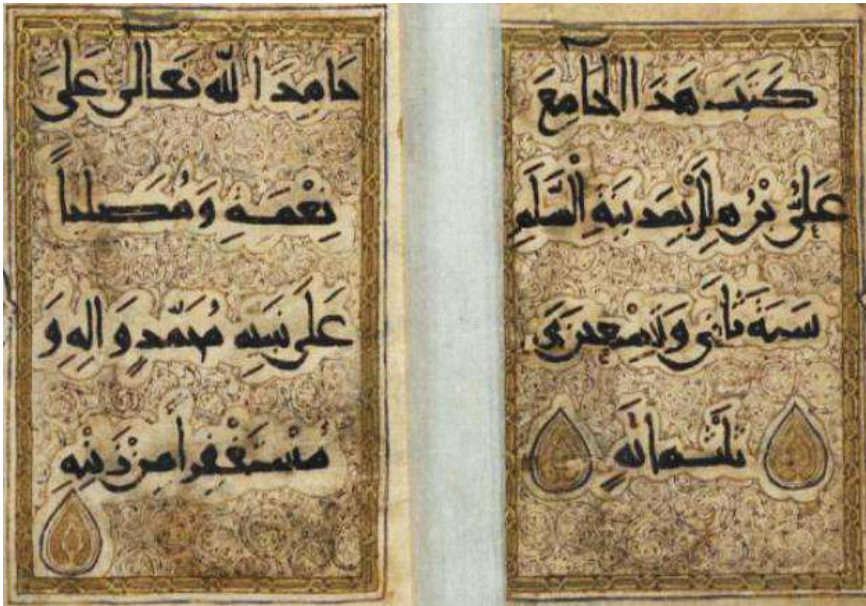 كتب هذا الجامع
علي بن هلال بمدينة السلم
سنة ثاني وتسعين و
ثلثمائة
حامدا لله تعالى على
نعمه ومصليا
على نبيه محمد واله و
مستغفرا من ذنبه